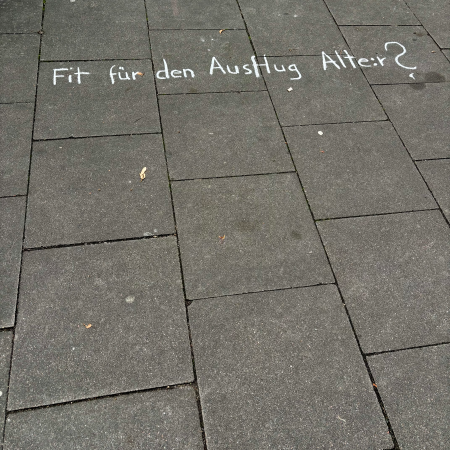 Fit für den Ausflug Alte:r?